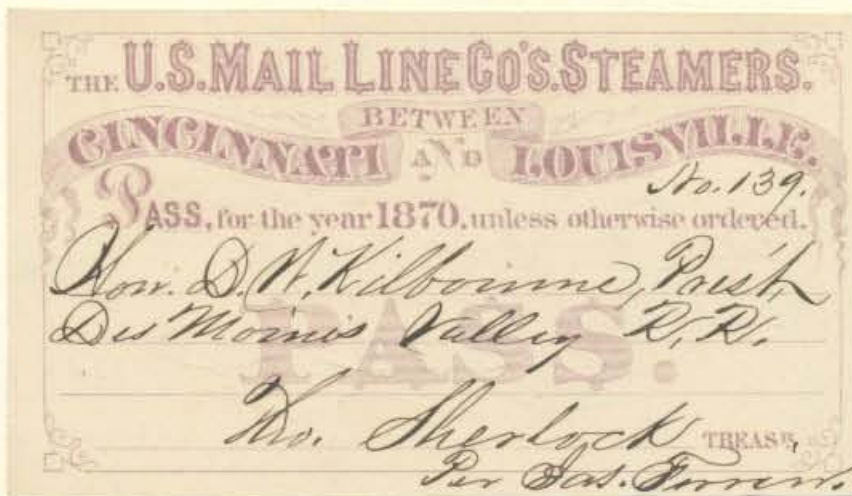 THE U.S. MAIL LINE CO'S. STEAMERS.
BETWEEN
CINCINNATI AND LOUISVILLE.
No. 139.
PASS, for the year 1870, unless otherwise ordered.
Hon. D. W. Kilbourne, Prest,
Des Moines Valley R. R.
PASS.
Tho. Sherlock TREASR,
Per Jas.